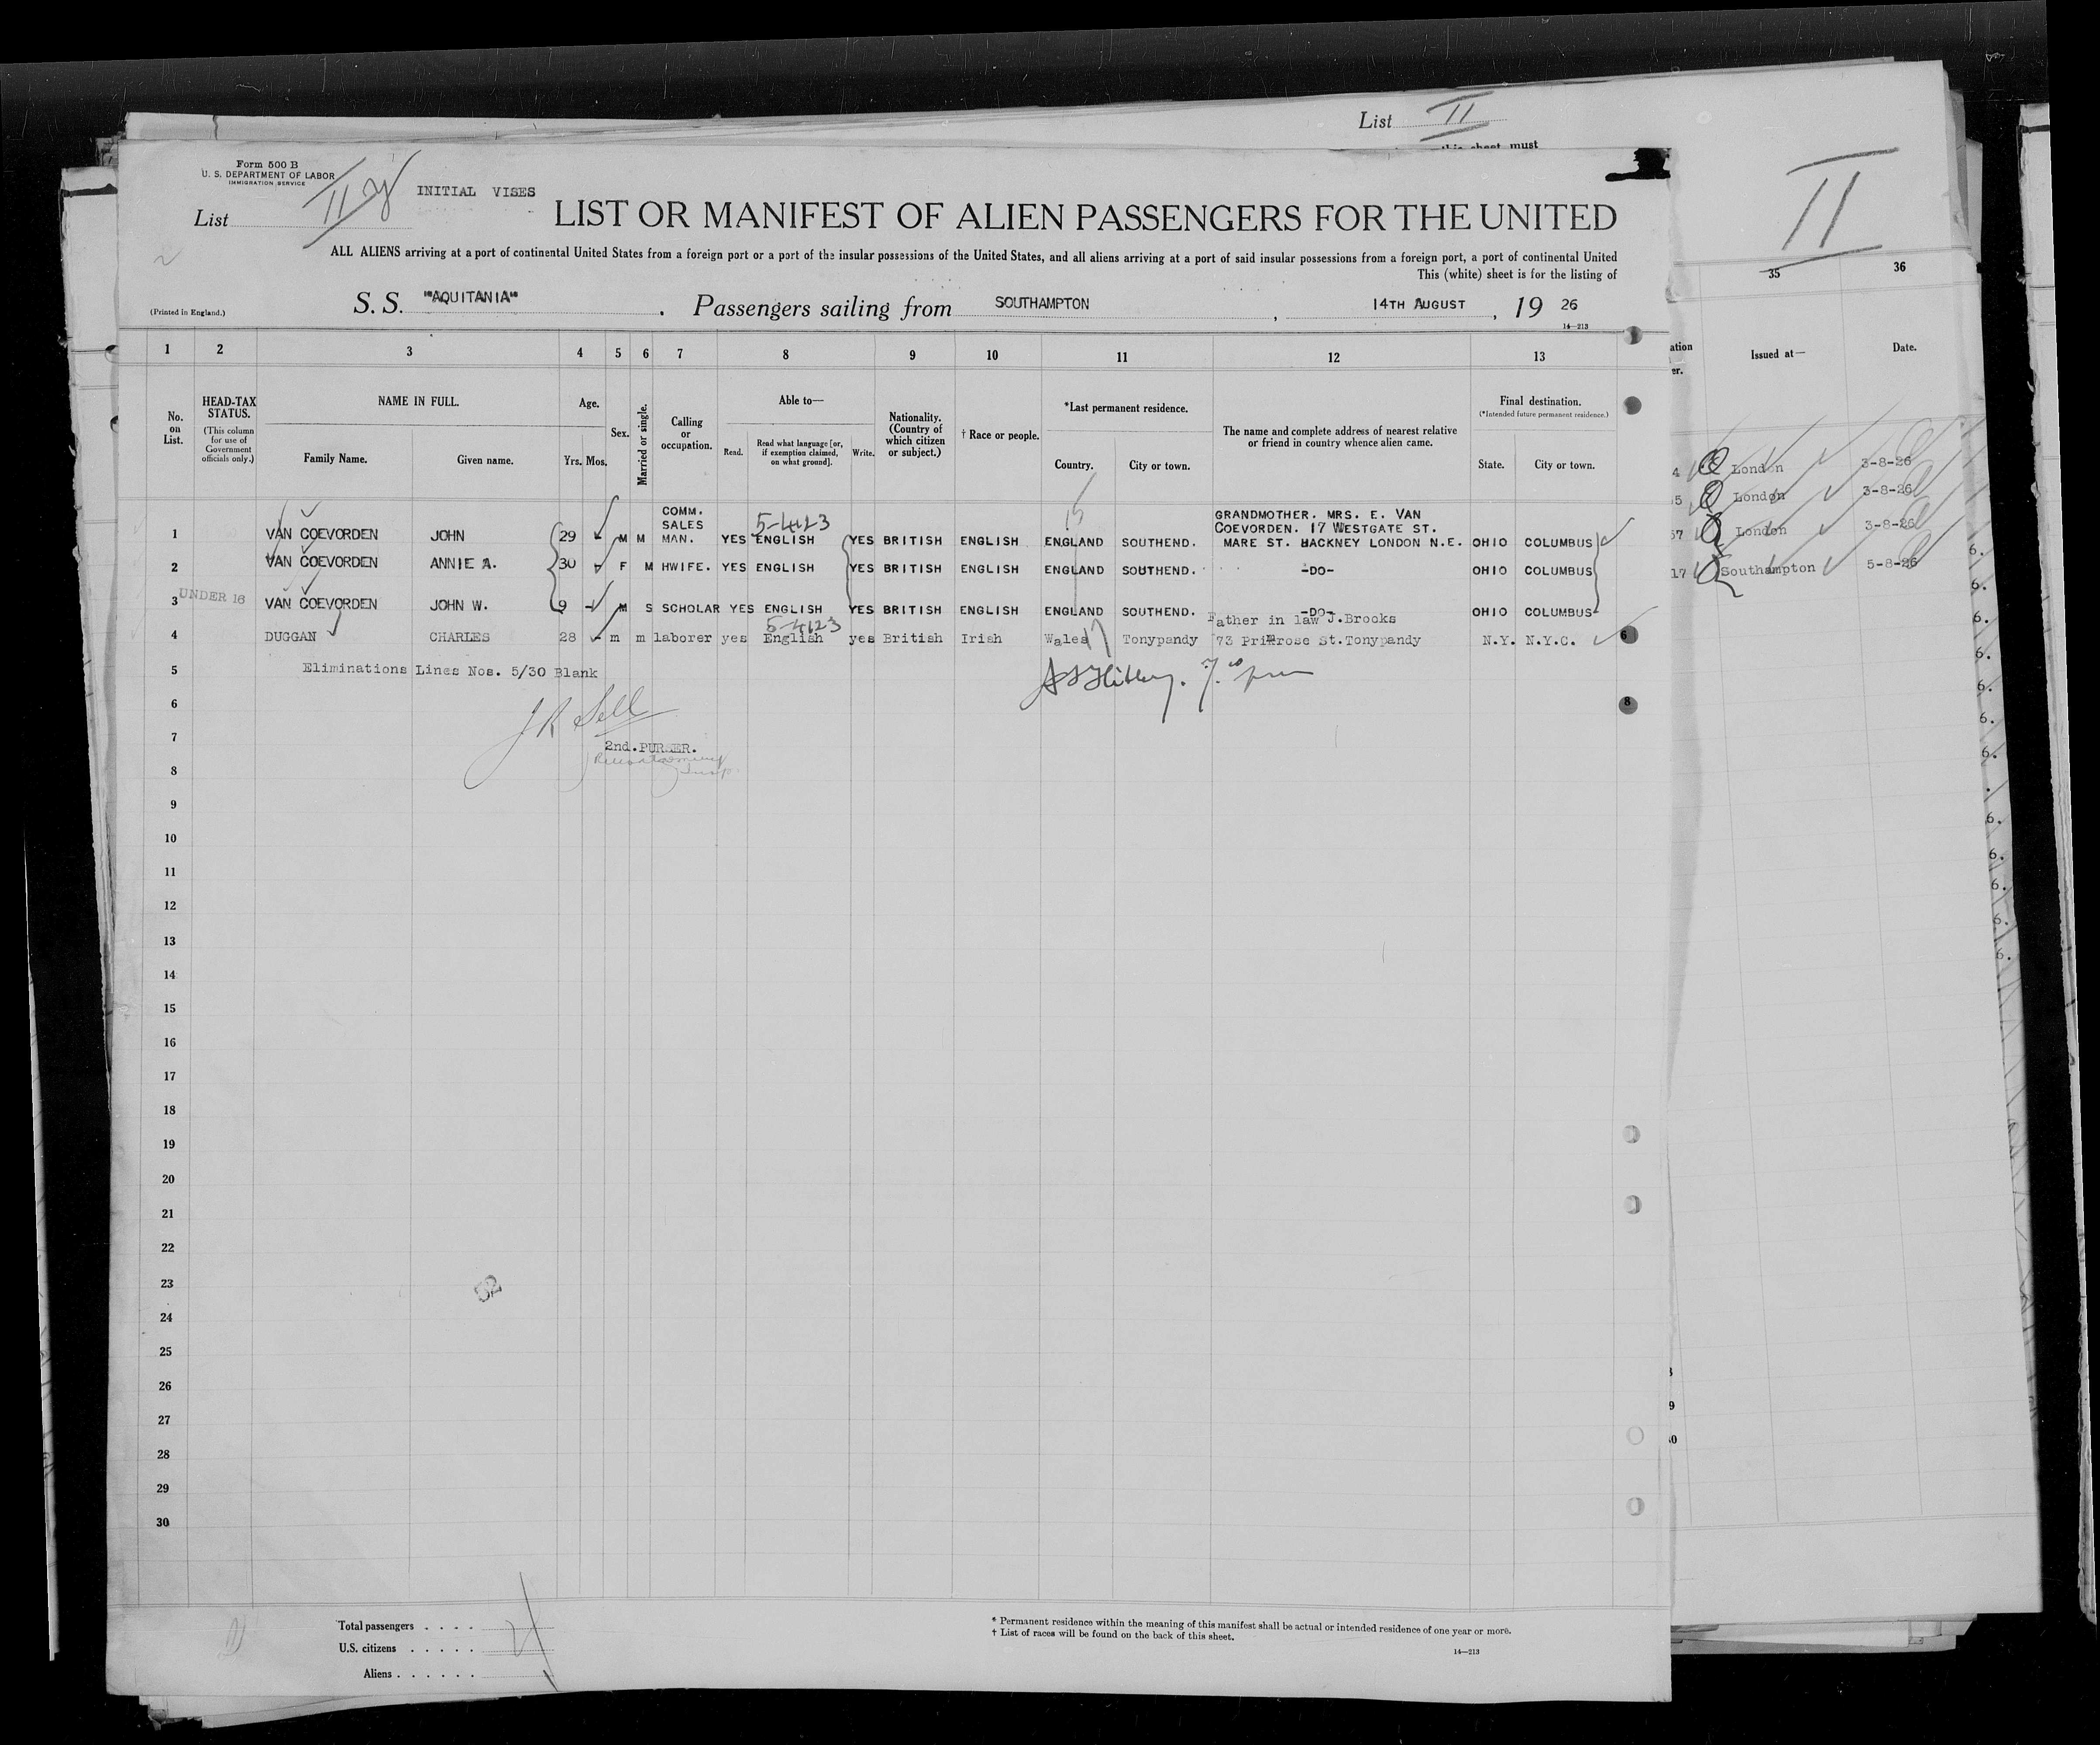 List II
this sheet must
II
Form 500 B
U. S. DEPARTMENT OF LABOR
IMMIGRATION SERVICE
List II
INITIAL VISES
LIST OR MANIFEST OF ALIEN PASSENGERS FOR THE UNITED
ALL ALIENS arriving at a port of continental United States from a foreign port or a port of the insular possessions of the United States, and all aliens arriving at a port of said insular possessions from a foreign port, a port of continental United
This (white) sheet is for the listing of
(Printed in England.)
S. S. "AQUITANIA" . Passengers sailing from SOUTHAMPTON , 14TH AUGUST , 19 26
14—213
1 2 3 4 5 6 7 8 9 10 11 12 13
No. on List.
HEAD-TAX STATUS.
(This column for use of Government officials only.)
NAME IN FULL.
Family Name. Given name.
Age.
Yrs. Mos.
Sex.
Married or single.
Calling or occupation.
Able to—
Read. Read what language [or, if exemption claimed, on what ground]. Write.
Nationality. (Country of which citizen or subject.)
† Race or people.
*Last permanent residence.
Country. City or town.
The name and complete address of nearest relative or friend in country whence alien came.
Final destination.
(*Intended future permanent residence.)
State. City or town.
1 VAN COEVORDEN JOHN 29 M M COMM. SALES MAN. YES ENGLISH YES BRITISH ENGLISH ENGLAND SOUTHEND. GRANDMOTHER. MRS. E. VAN COEVORDEN. 17 WESTGATE ST. MARE ST. HACKNEY LONDON N.E. OHIO COLUMBUS
2 VAN COEVORDEN ANNIE A. 30 F M HWIFE. YES ENGLISH YES BRITISH ENGLISH ENGLAND SOUTHEND. -DO- OHIO COLUMBUS
UNDER 16
3 VAN COEVORDEN JOHN W. 9 M S SCHOLAR YES ENGLISH YES BRITISH ENGLISH ENGLAND SOUTHEND. -DO- OHIO COLUMBUS
4 DUGGAN CHARLES 28 m m laborer yes English yes British Irish Wales Tonypandy Father in law J.Brooks 73 Primrose St.Tonypandy N.Y. N.Y.C.
5 Eliminations Lines Nos. 5/30 Blank
6 J R Sell
7 2nd.PURSER.
8
9
10
11
12
13
14
15
16
17
18
19
20
21
22
23
52
24
25
26
27
28
29
30
Total passengers . . . .
U.S. citizens . . . . .
Aliens . . . . . .
* Permanent residence within the meaning of this manifest shall be actual or intended residence of one year or more.
† List of races will be found on the back of this sheet.
14—213
35 36
Issued at— Date.
London 3-8-26
London 3-8-26
London 3-8-26
Southampton 5-8-26